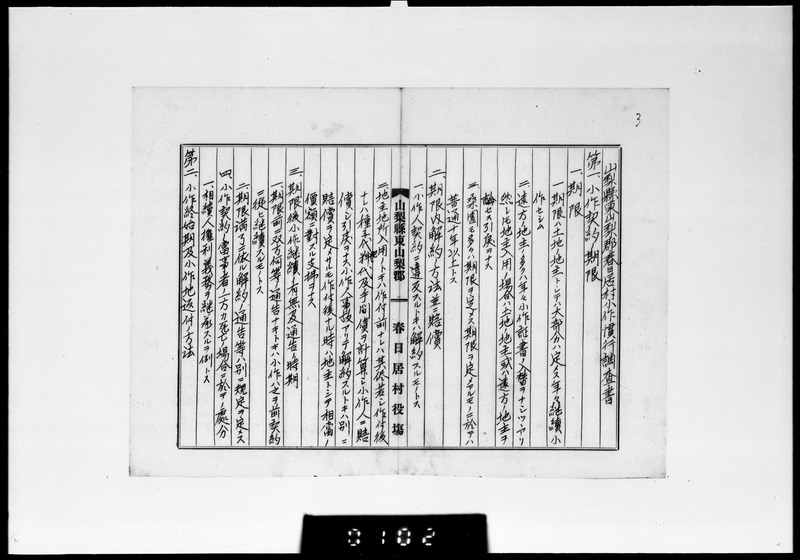 3
山梨縣東山梨郡春日居村小作慣行調査書
第一、小作契約ノ期限
一、期限
一、期限ハ土地地主トシテハ大部分ハ定メス年々継續小
作セシム
二、遠方地主ノ多クハ年々小作証書ノ入替ヲナシツヽアリ
然レモ地主入用ノ場合ハ土地地主或ハ遠方地主ヲ
論セス引戻ヲナス
三、桑園モ多クハ期限ヲ定メス期限ヲ定メアルモノニ於テハ
普通十年以上トス
二、期限内解約ノ方法並ニ賠償
一、小作人契約ニ違反スルトキハ解約スルモノトス
二、地主地所入用ノトキハ作付前ナレハ其侭若シ作付後
ナレハ種代肥料代及手間償ヲ計算シ小作人ニ賠
償シ引戻ヲナス小作人事故アリテ解約スルトキハ別ニ
賠償ヲ定メサルモ作付後ナル時ハ地主トシテ相當ノ
價額ニ對スル支拂ヲナス
三、期限後小作継續ノ有無及通告ノ時期
一、期限前ニ双方何等ノ通告ナキトキハ小作ハ之ヲ前契約
ニ從ヒ継續スルモノトス
二、期限満了ニ依ル解約ノ通告等ハ別ニ規定ヲ定メス
四、小作契約ノ當事者ノ一方カ死亡ノ場合ニ於テノ處分
一、相續人権利義務ヲ継承スルヲ例トス
第二、小作終始期及小作地返付ノ方法
山梨縣東山梨郡 春日居村役場
0102